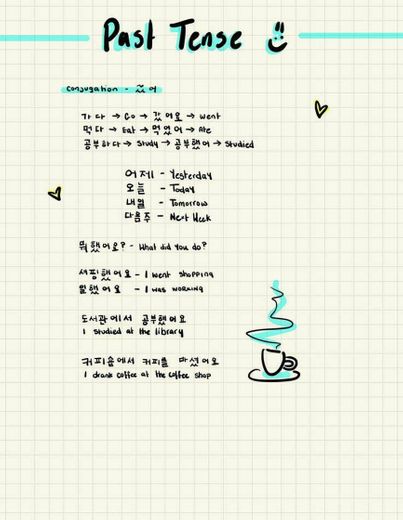 Past Tense
Conjugation - ㅆ어
가다 → Go → 갔어요 → Went
먹다 → Eat → 먹었어 → Ate
공부하다 → Study → 공부했어 → Studied
어제 - Yesterday
오늘 - Today
내일 - Tomorrow
다음주 - Next Week
뭐했어요? - What did you do?
쇼핑했어요 - I went shopping
일했어요 - I was working
도서관에서 공부했어요
I studied at the library
커피숍에서 커피를 마셨어요
I drank coffee at the coffee shop